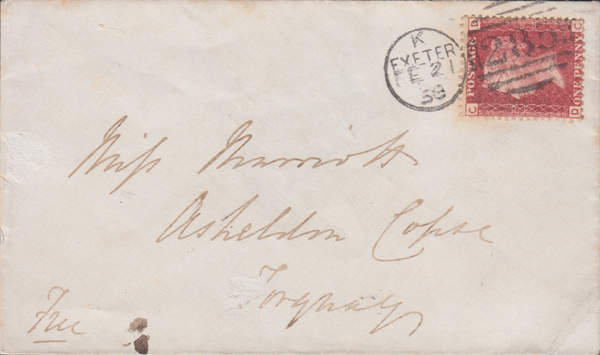 K
EXETER
FE 21
58
D C
POSTAGE
ONE PENNY
C D
Miss Marriott
Asheldon Copse
Torquay